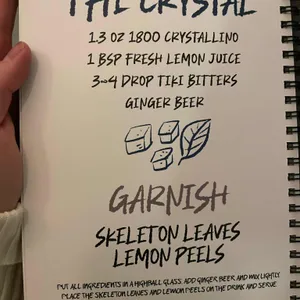 THE CRYSTAL
1.3 OZ 1800 CRYSTALLINO
1 BSP FRESH LEMON JUICE
3-4 DROP TIKI BITTERS
GINGER BEER
GARNISH
SKELETON LEAVES
LEMON PEELS
PUT ALL INGREDIENTS IN A HIGHBALL GLASS. ADD GINGER BEER AND MIX LIGHTLY
PLACE THE SKELETON LEAVES AND LEMON PEELS ON THE DRINK AND SERVE